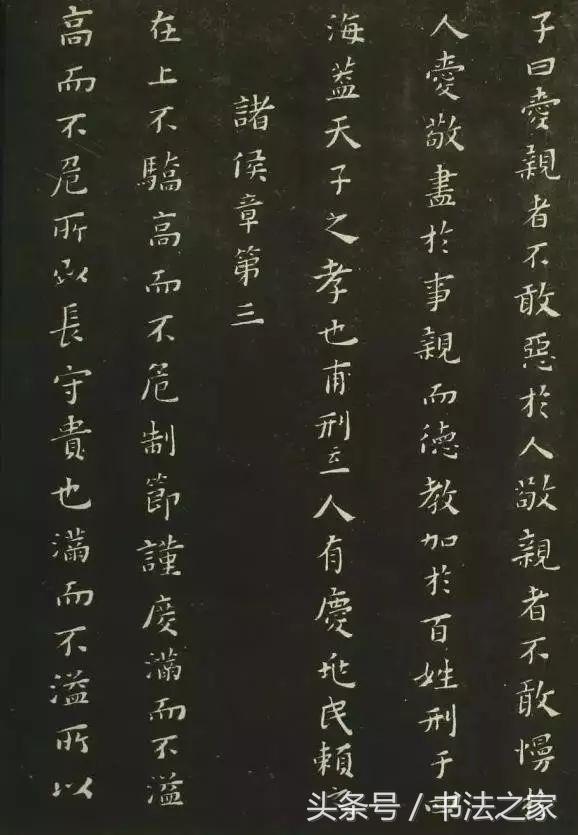 子曰愛親者不敢惡於人敬親者不敢慢於
人愛敬盡於事親而德教加於百姓刑于四
海蓋天子之孝也甫刑云一人有慶兆民賴
諸侯章第三
在上不驕高而不危制節謹度滿而不溢
高而不危所以長守貴也滿而不溢所以
头条号／书法之家